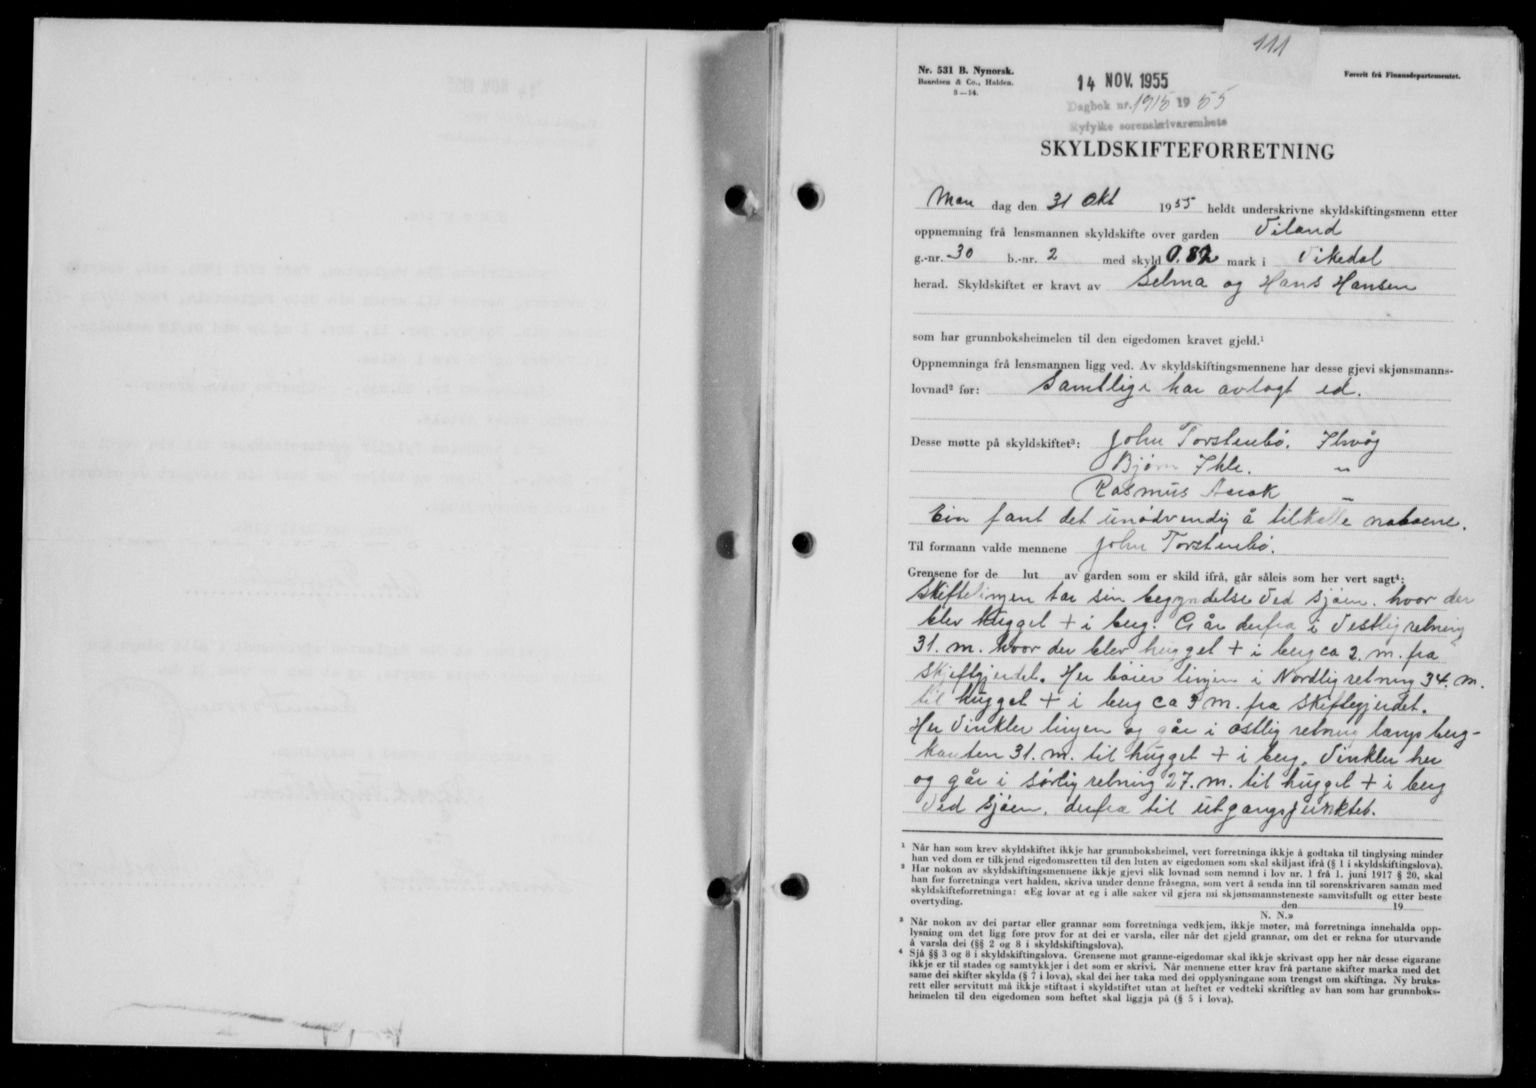 111
Nr. 531 B. Nynorsk.
Baardsen & Co., Halden.
8—54.
14 NOV. 1955
Førerit frå Finansdepartementet.
Dagbok nr. 1915 1955
Ryfylke sorenskrivarembete
SKYLDSKIFTEFORRETNING
Man dag den 31 Okt 1955 heldt underskrivne skyldskiftingsmenn etter
oppnemning frå lensmannen skyldskifte over garden Viland
g.-nr. 30 b.-nr. 2 med skyld 0.82 mark i Vikedal
herad. Skyldskiftet er kravt av Selma og Hans Hansen
som har grunnboksheimelen til den eigedomen kravet gjeld.¹
Oppnemninga frå lensmannen ligg ved. Av skyldskiftingsmennene har desse gjevi skjønsmanns-
lovnad² før: Samtlige har avlagt ed.
Desse møtte på skyldskiftet³: John Torstenbö.
Bjørn Ihle. "
Rasmus "
Ein fant det unödvendig å tilkalle naboene.
Til formann valde mennene John Torstenbö.
Grensene for de lut av garden som er skild ifrå, går såleis som her vert sagt⁴:
Skiftelinjen tar sin begyndelse ved sjöen. hvor der
blev hugget + i berg. Går derfra i Vestlig retning
31. m. hvor der blev hugget + i berg ca 2. m. fra
skiftegjerdet. Her böier linjen i Nordlig retning 34. m.
til hugget + i berg ca 3 m. fra skiftegjerdet.
Her vinkler linjen og går i östlig retning langs berg-
kanten 31. m. til hugget + i berg. Vinkler her
og går i sörlig retning 27. m. til hugget + i berg
ved sjöen. derfra til utgangspunktet.
¹ Når han som krev skyldskiftet ikkje har grunnboksheimel, vert forretninga ikkje å godtaka til tinglysing minder
han ved dom er tilkjend eigedomsretten til den luten av eigedomen som skal skiljast ifrå (§ 1 i skyldskiftingslova).
² Har nokon av skyldskiftingsmennene ikkje gjevi slik lovnad som nemnd i lov nr. 1 frå 1. juni 1917 § 20, skal
han før forretninga vert halden, skriva under denne fråsegna, som vert å senda inn til sorenskrivaren saman med
skyldskifteforretninga: «Eg lovar at eg i alle saker vil gjera mi skjønsmannsteneste samvitsfullt og etter beste
overtyding.
den 19
N. N.»
³ Når nokon av dei partar eller grannar som forretninga vedkjem, ikkje møter, må forretninga innehalda opp-
lysning om det ligg føre prov for at dei er varsla, eller når det gjeld grannar, om det er rekna for uturvande
å varsla dei (§§ 2 og 8 i skyldskiftingslova).
⁴ Sjå §§ 3 og 8 i skyldskiftingslova. Grensene mot granne-eigedomar skal ikkje skrivast opp her når desse eigarane
ikkje er til stades og samtykkjer i det som er skrivi. Når mennene etter krav frå partane skifter marka med det
same dei skifter skylda (§ 7 i lova), skal dei her taka med dei opplysningane som trengst om skiftinga. Ny bruks-
rett eller servitutt må ikkje stiftast i skyldstiftet utan at heftet er vedteki skriftleg av han som har grunnboks-
heimelen til den eigedomen som heftet skal liggja på (§ 5 i lova).